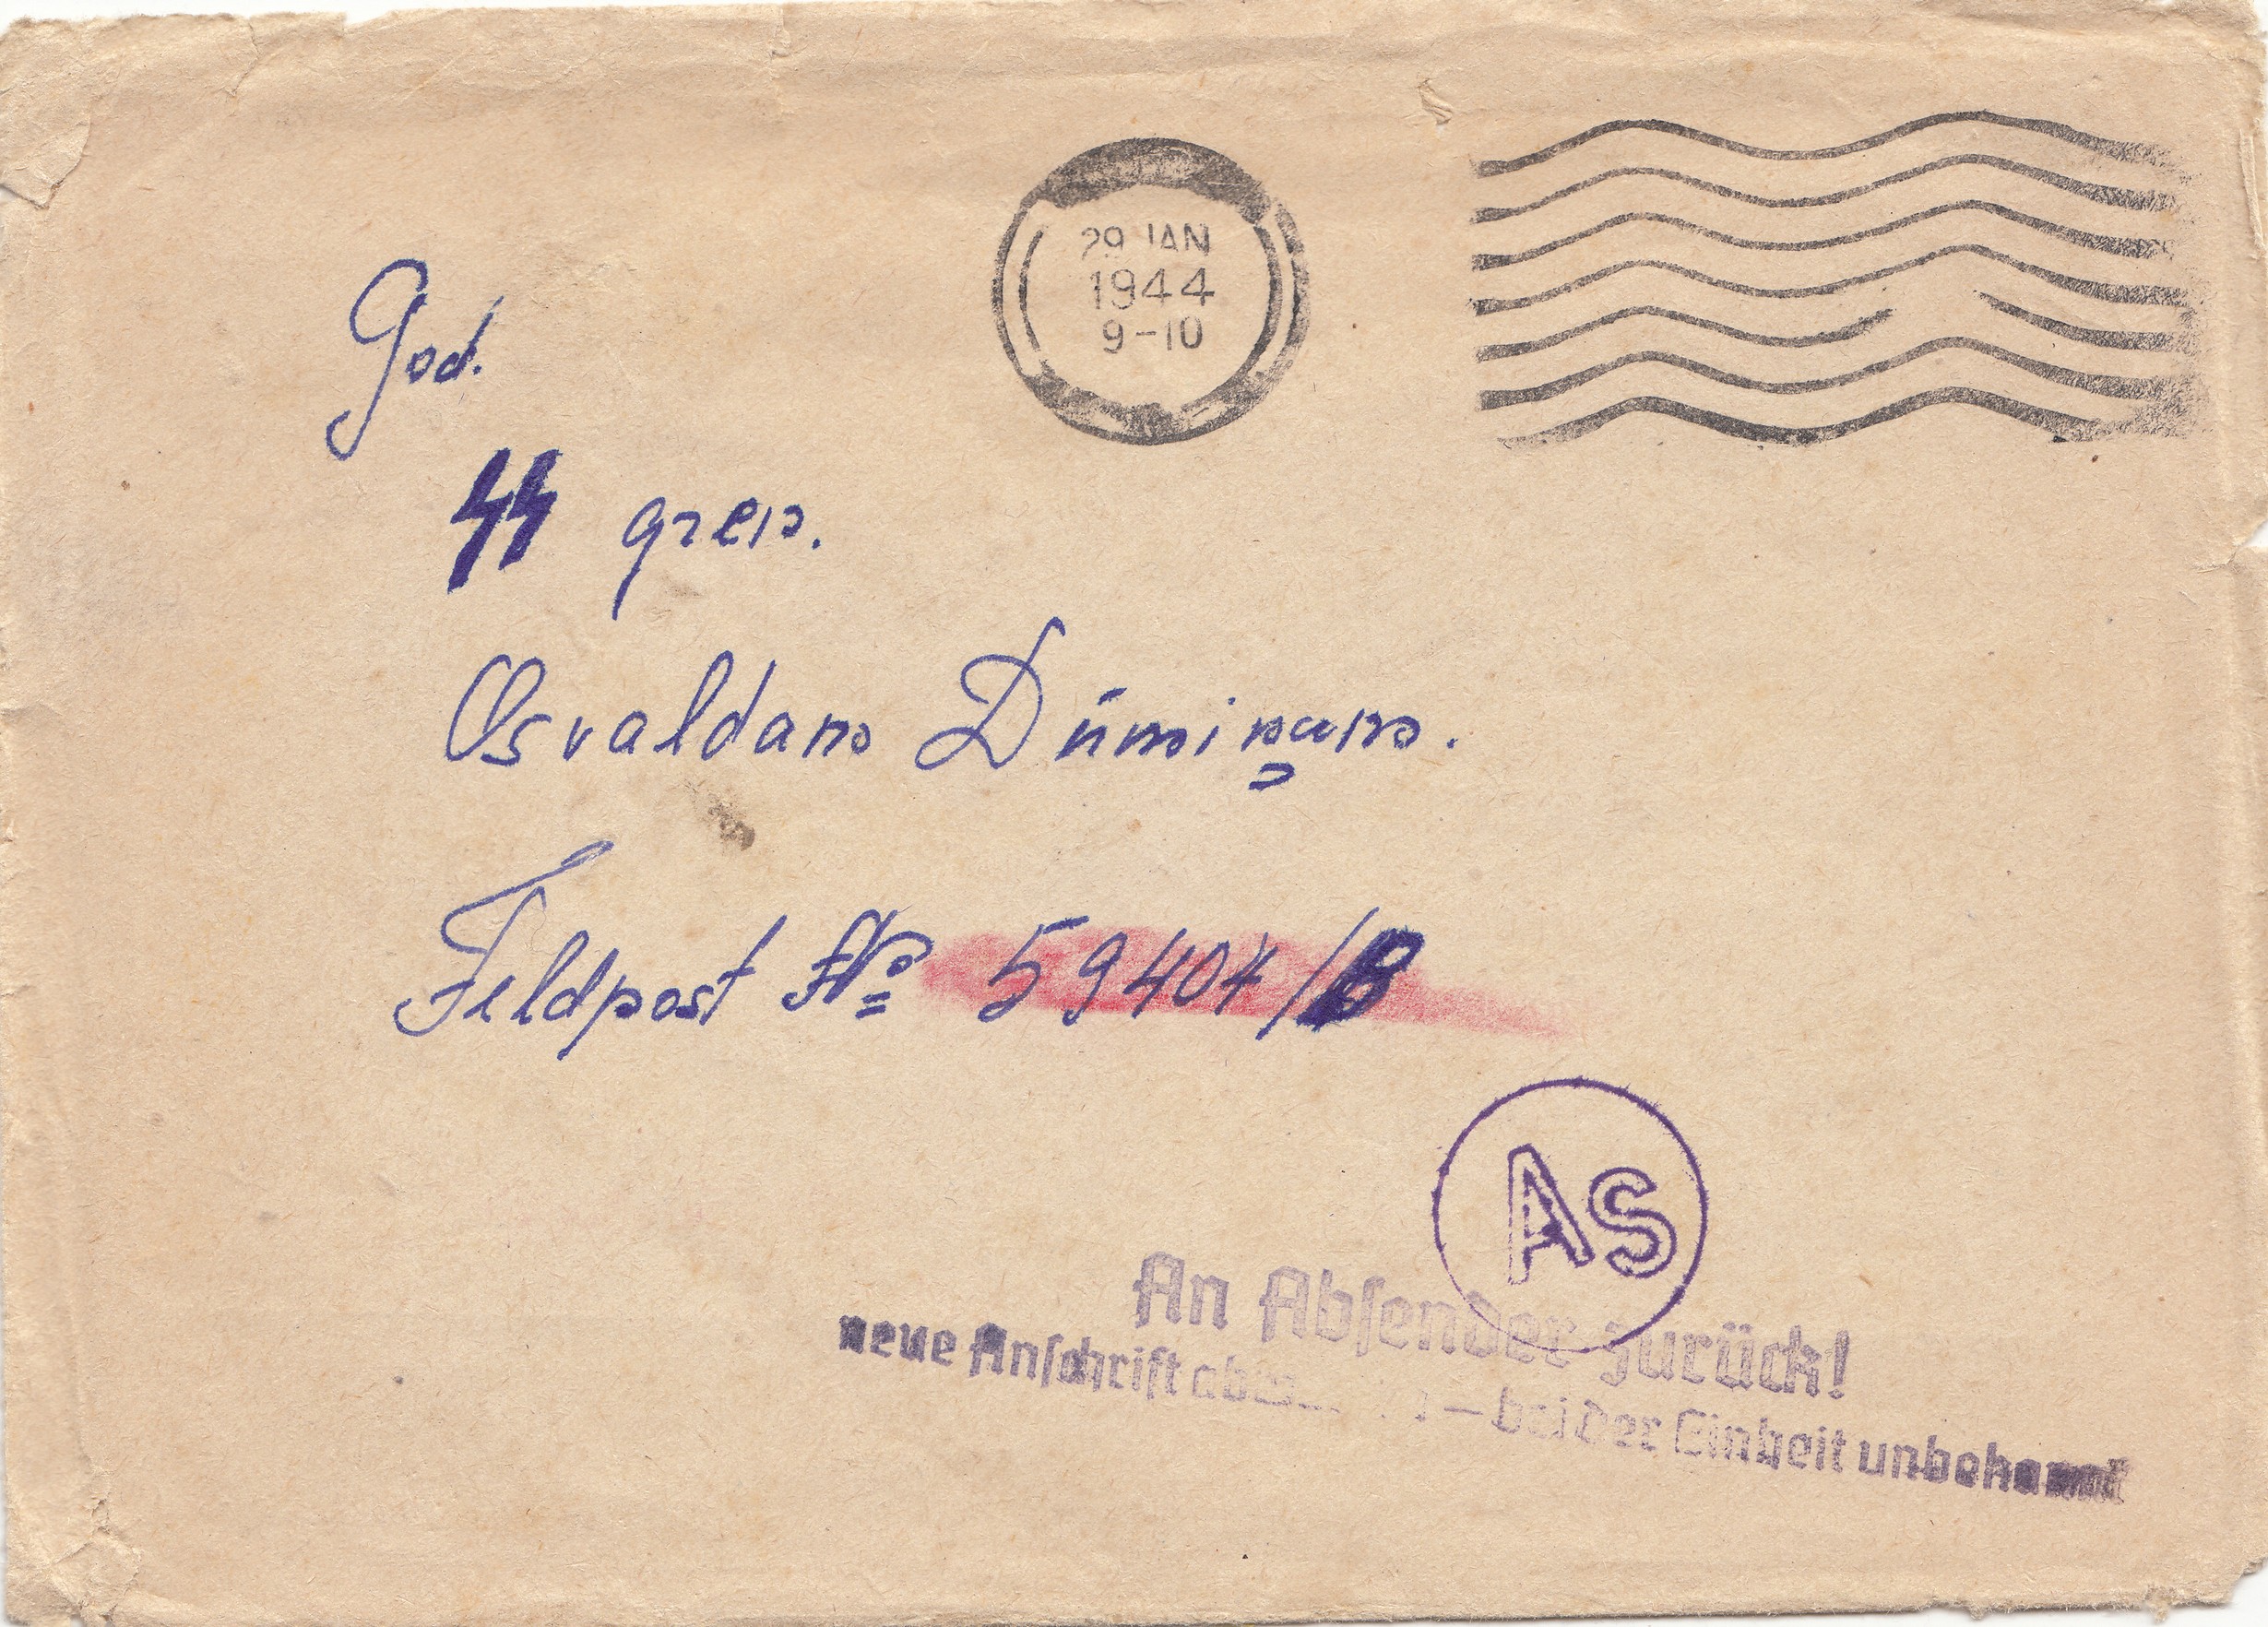 29 JAN
1944
9-10
God.
SS gren.
Osvaldam Dūmiņam.
Feldpost № 59404/B
AS
An Absender zurück!
neue Anschrift — bei der Einheit unbekannt